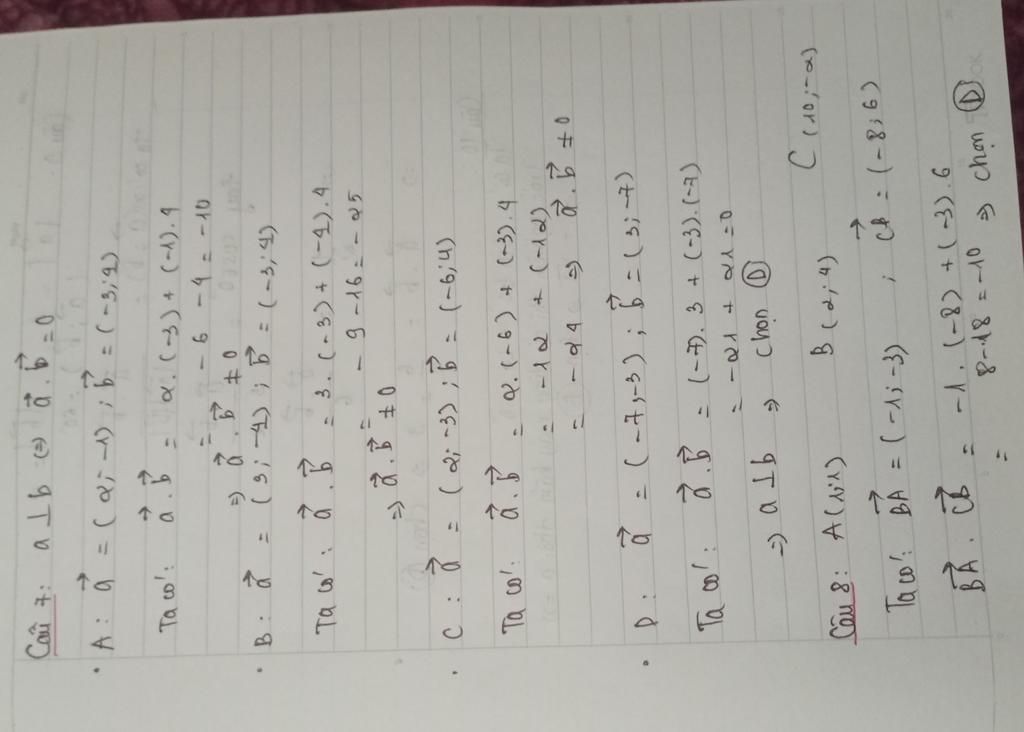 Câu 7: a ⊥ b ⇔ a⃗ . b⃗ = 0
• A: a⃗ = (2; -1); b⃗ = (-3; 4)
Ta có: a⃗ . b⃗ = 2.(-3) + (-1).4
= -6 - 4 = -10
⇒ a⃗ . b⃗ ≠ 0
• B: a⃗ = (3; -4); b⃗ = (-3; 4)
Ta có: a⃗ . b⃗ = 3.(-3) + (-4).4
-9 - 16 = -25
⇒ a⃗ . b⃗ ≠ 0
• C: a⃗ = (2; -3); b⃗ = (-6; 4)
Ta có: a⃗ . b⃗ = 2.(-6) + (-3).4
= -12 + (-12)
= -24 ⇒ a⃗ . b⃗ ≠ 0
• D: a⃗ = (-7; -3); b⃗ = (3; -7)
Ta có: a⃗ . b⃗ = (-7).3 + (-3).(-7)
= -21 + 21 = 0
⇒ a ⊥ b ⇒ chọn D
Câu 8: A(1;1) B(2;4) C(10;-2)
Ta có: BA⃗ = (-1; -3) ; CB⃗ = (-8; 6)
BA⃗ . CB⃗ = -1.(-8) + (-3).6
= 8-18 = -10 ⇒ chọn D